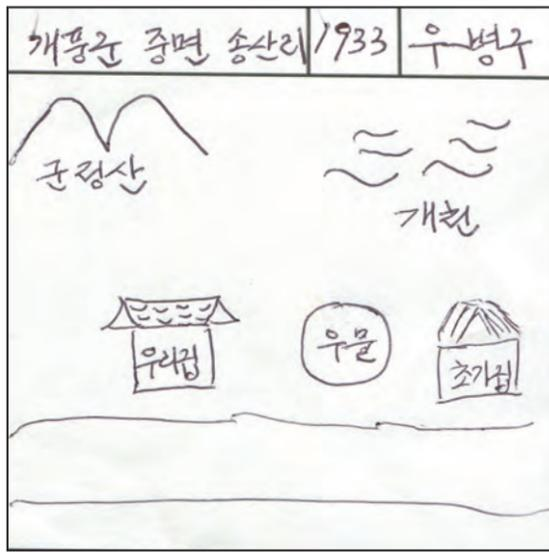 개풍군 중면 송산리 1933 우병구
군령산
개천
우리집 우물 초가집